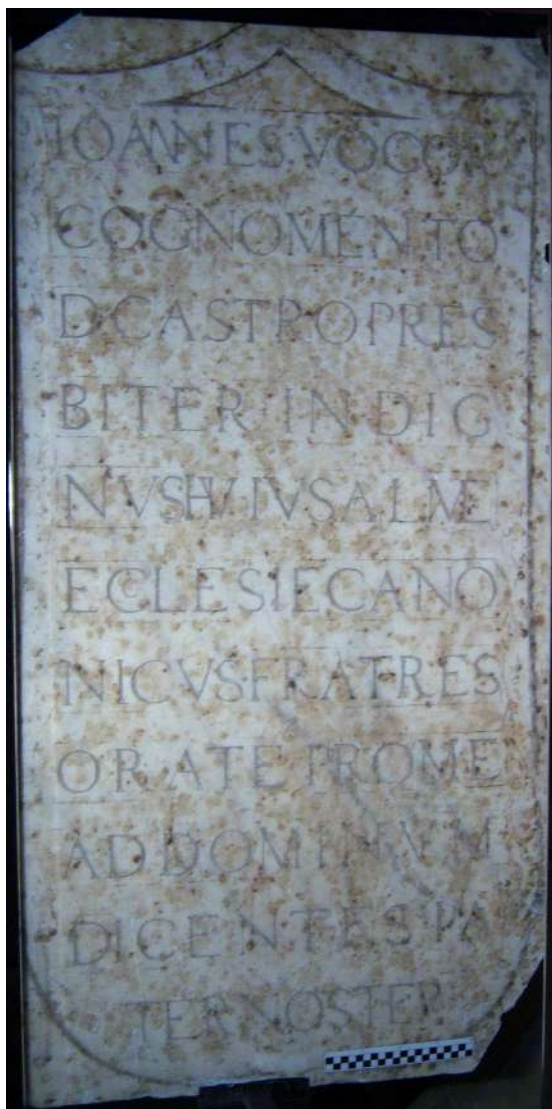 IOANNES VOCOR
COGNOMENTO
D CASTRO PRES
BITER INDIG
NVS HVIVS ALME
ECCLESIE CANO
NICVS FRATRES
ORATE PRO ME
AD DOMINVM
DICENTES PA
TER NOSTER